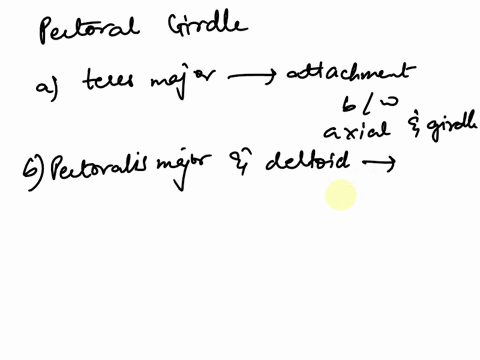 Pectoral Girdle
a) teres major → attachment
b/w
axial & girdle
b) Pectoralis major & deltoid →